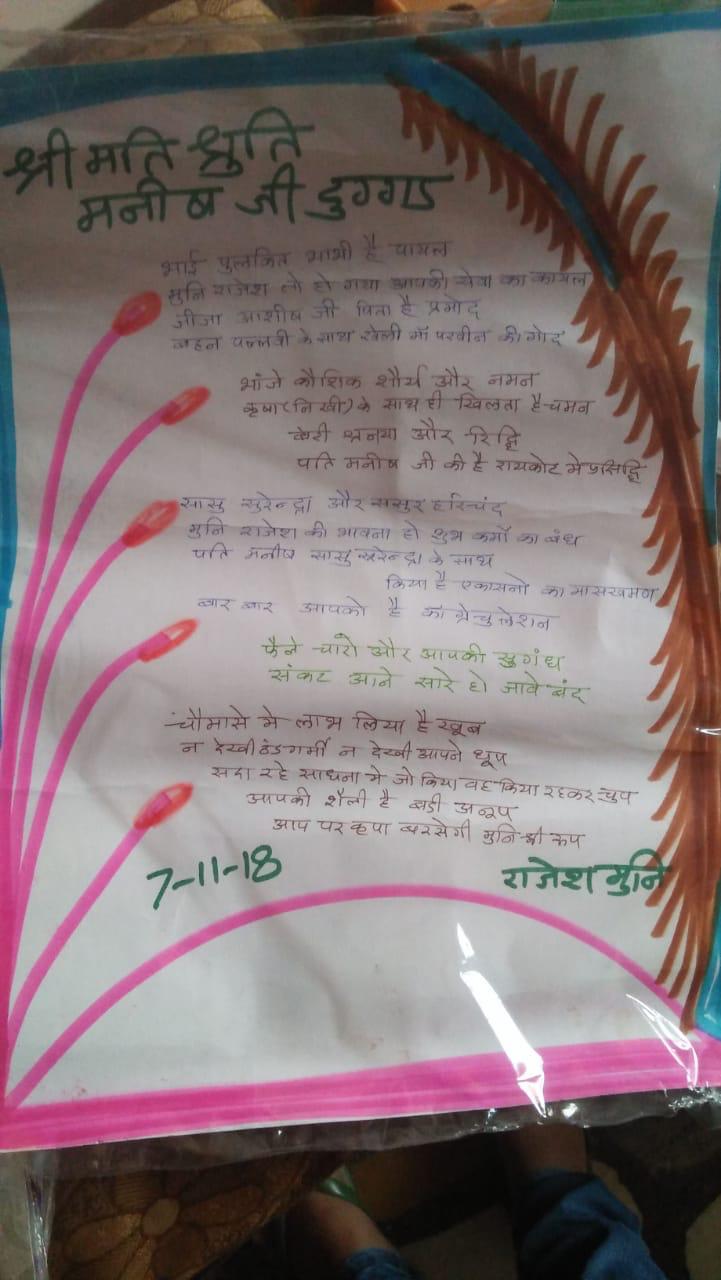 श्रीमति श्रुति
मनीष जी दुग्गड
भाई पुलकित भाभी है पायल
मुनि राजेश तो हो गया आपकी सेवा का कायल
जीजा आशीष जी पिता है प्रमोद
बहन पल्लवी के साथ खेली माँ परवीन की गोद
भांजे कौशिक शौर्य और नमन
कृषा(निखी) के साथ ही खिलता है चमन
बेटी श्रनया और रिद्धि
पति मनीष जी की है रायकोट मे प्रसिद्धि
सासु सुरेन्द्रा और ससुर हरिचंद
मुनि राजेश की भावना हो शुभ कर्मो का बंध
पति मनीष सासु सुरेन्द्रा के साथ
किया है एकासनो का मासखमण
बार बार आपको है कॉग्रेचुलेशन
फैले चारो और आपकी सुगंध
संकट आने सारे हो जावे बंद
चौमासे मे लाभ लिया है खूब
न देखी ठंड गर्मी न देखी आपने धूप
सदा रहे साधना मे जो किया वह किया रहकर चुप
आपकी शैली है बडी अनूप
आप पर कृपा बरसेगी मुनि श्री रूप
7-11-18
राजेश मुनि